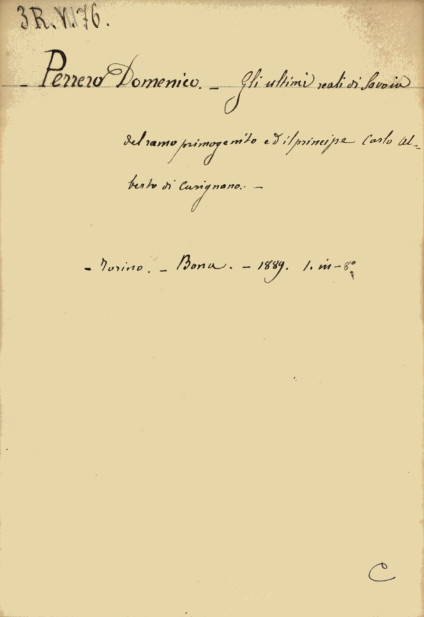 3R.VI.76.
- Perrero Domenico. - Gli ultimi reali di Savoia
del ramo primogenito ed il principe Carlo Al-
berto di Carignano. -
- Torino. - Bona. - 1889. 1. in-8º
C